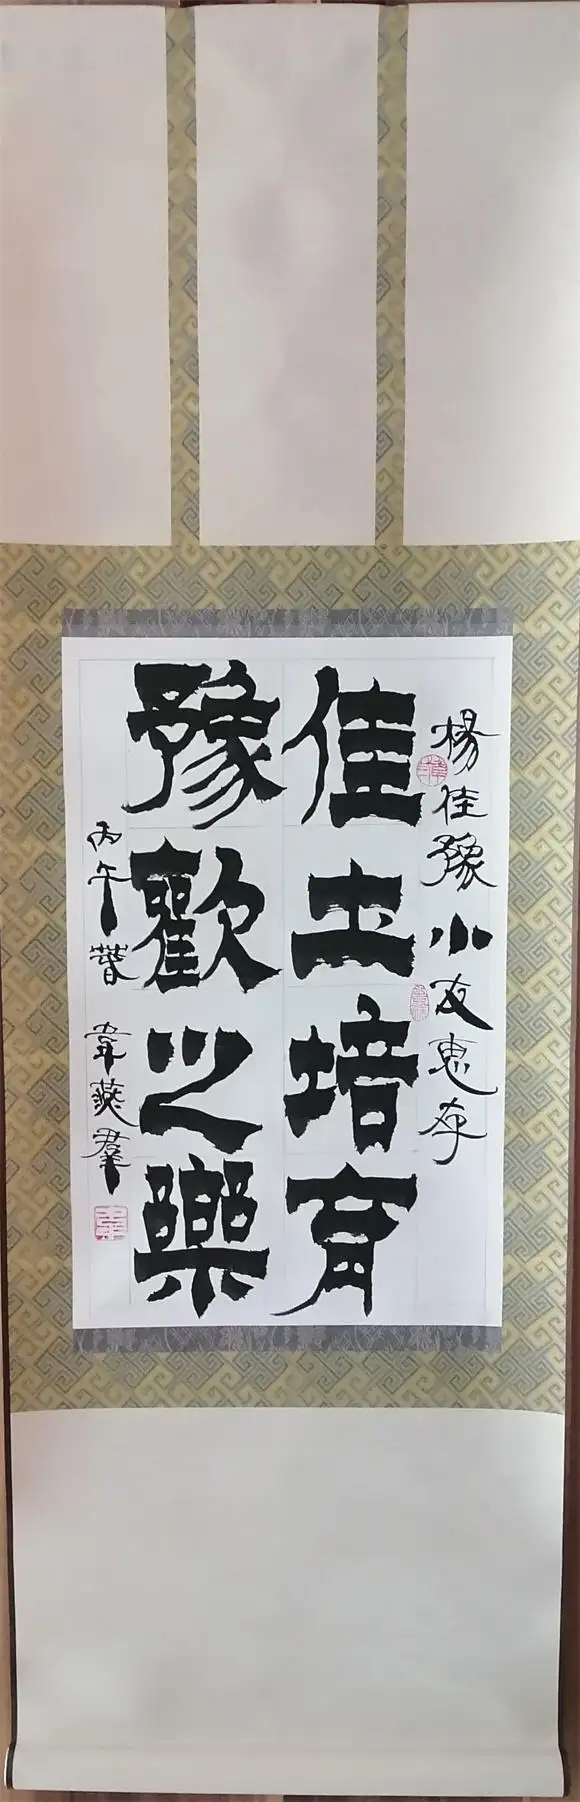 楊佳豫小友惠存
佳土培育
豫歡之樂
丙午春 韋燕羣